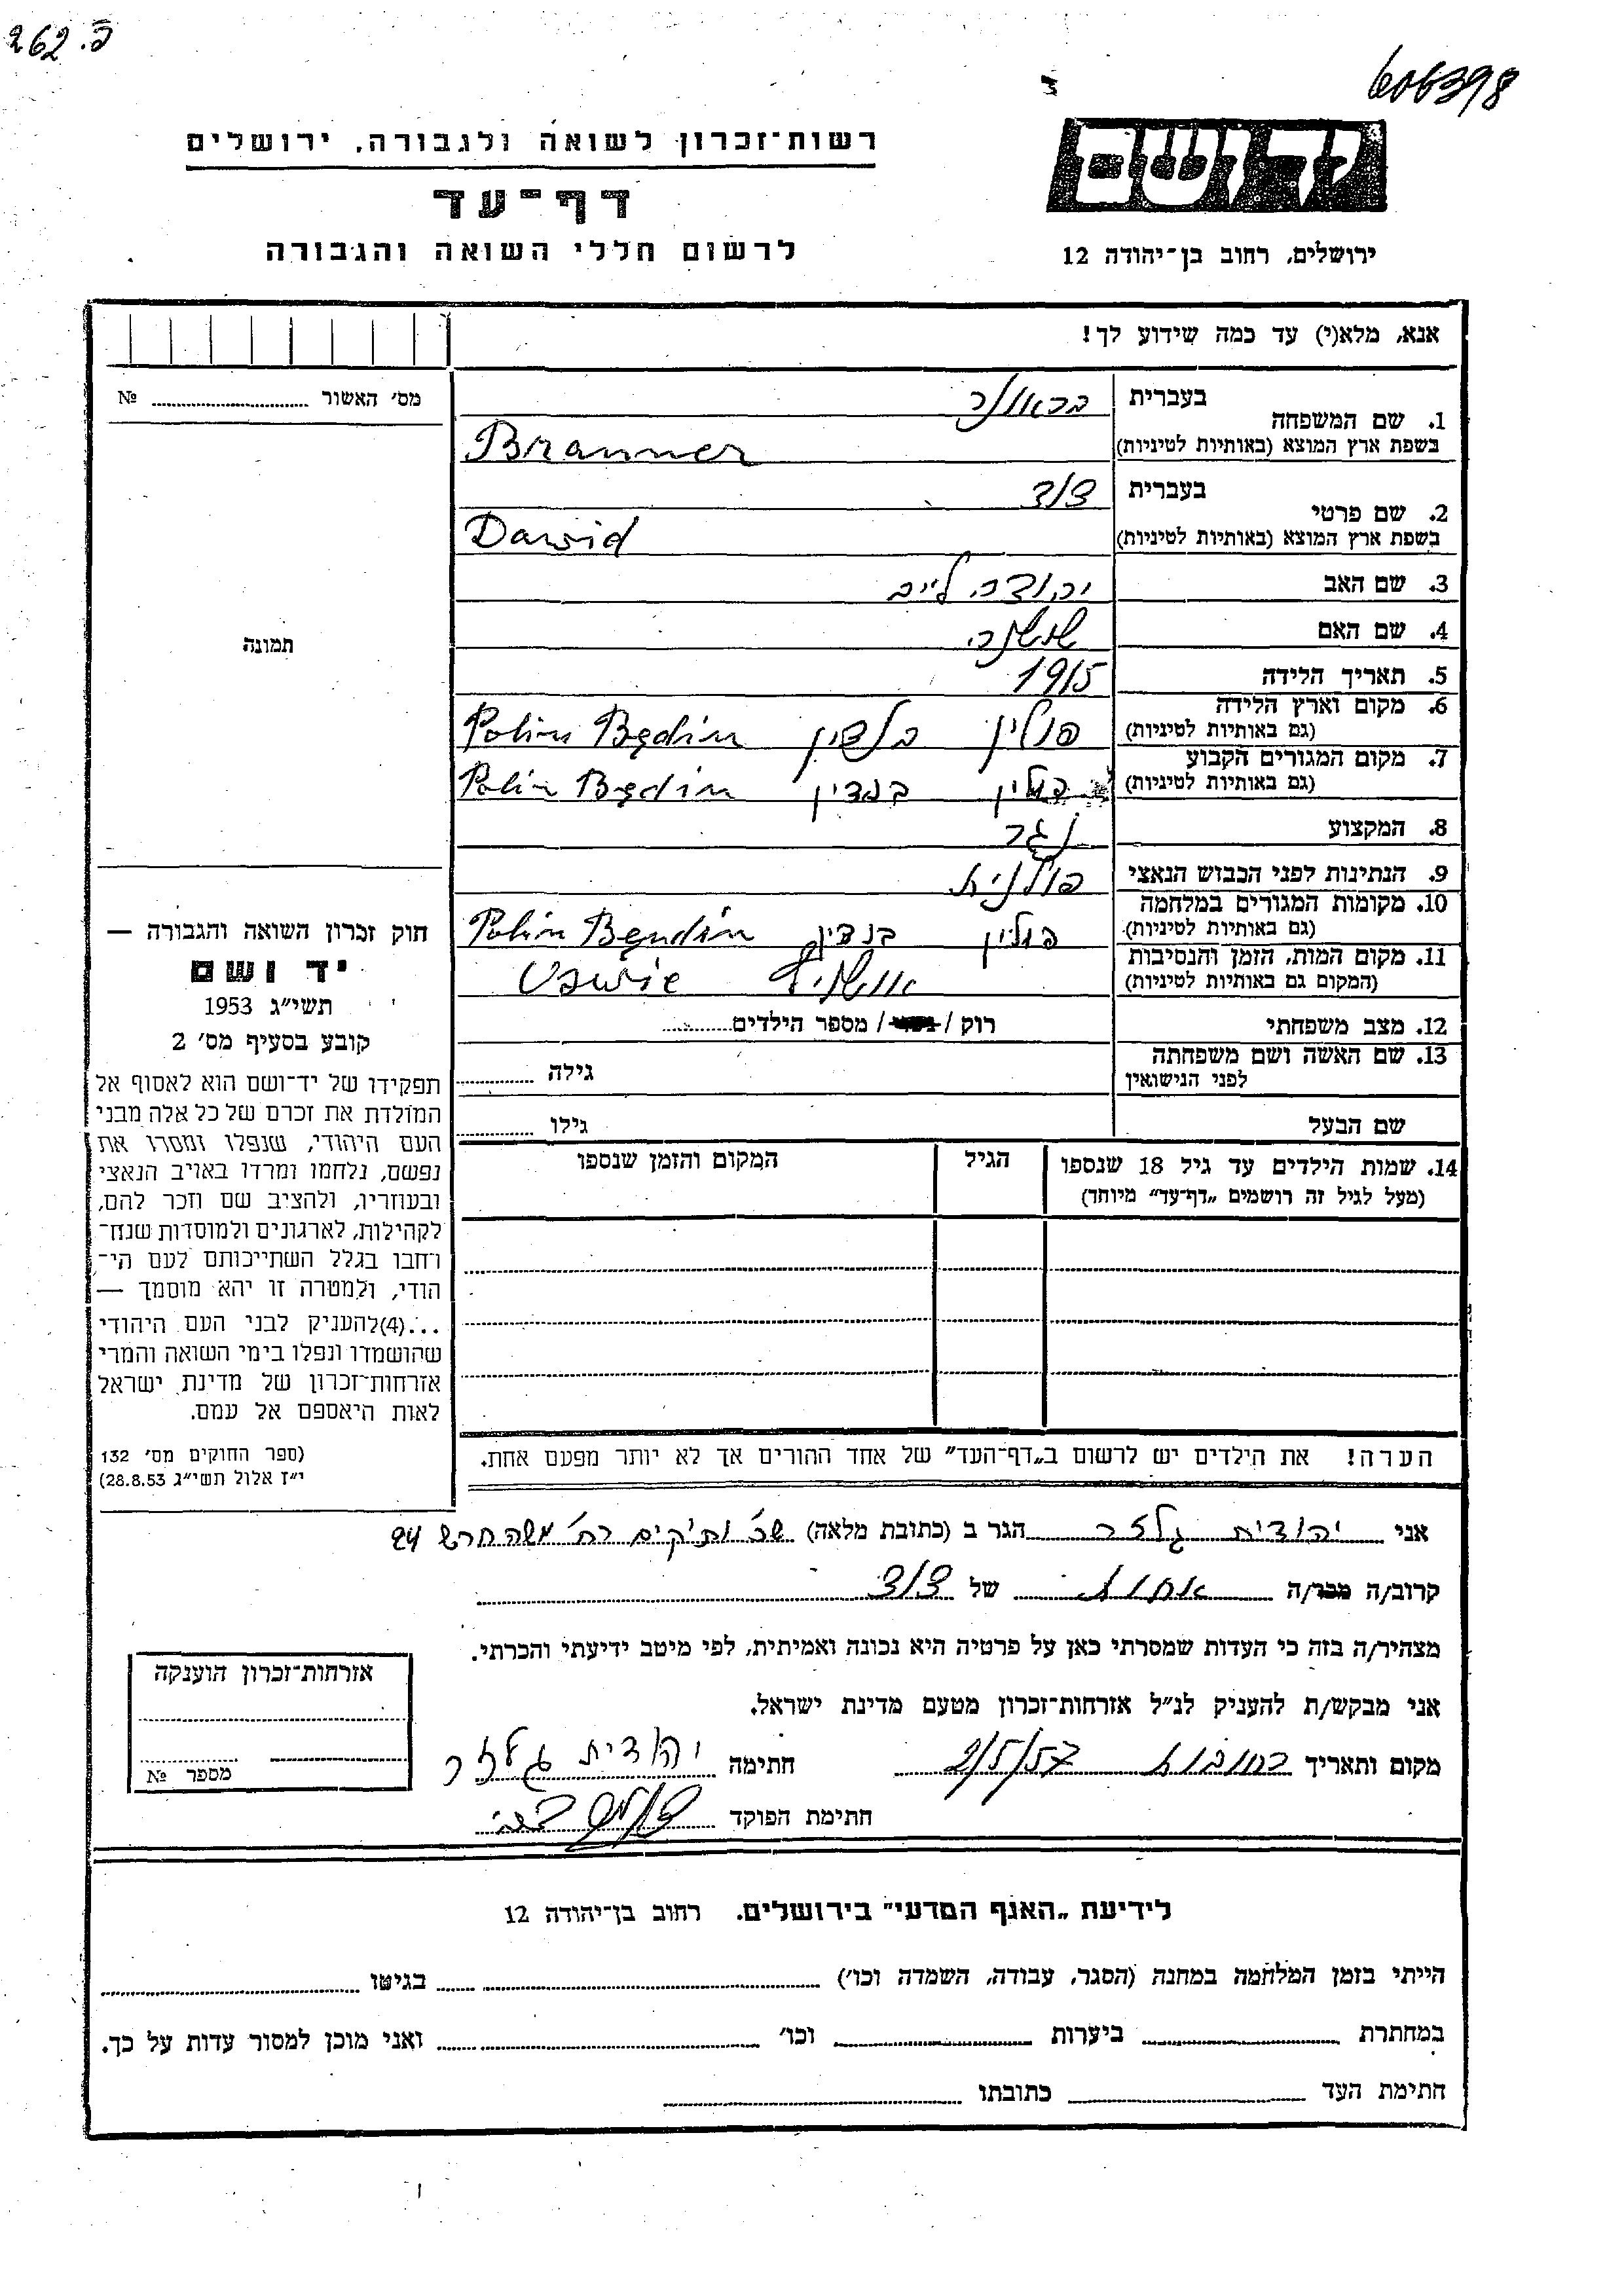 262.פ
606398
רשות־זכרון לשואה ולגבורה, ירושלים
דף־עד
לרשום חללי השואה והגבורה
יד ושם
ירושלים, רחוב בן־יהודה 12
אנא, מלא(י) עד כמה שידוע לך!
מס׳ האשור № 
תמונה
חוק זכרון השואה והגבורה —
יד ושם
תשי״ג 1953
קובע בסעיף מס׳ 2
תפקידו של יד־ושם הוא לאסוף אל
המולדת את זכרם של כל אלה מבני
העם היהודי, שנפלו ומסרו את
נפשם, נלחמו ומרדו באויב הנאצי
ובעוזריו, ולהציב שם וזכר להם,
לקהילות, לארגונים ולמוסדות שנח־
רחבו בגלל השתייכותם לעם הי־
הודי, ולמטרה זו יהא מוסמך —
...(4)להעניק לבני העם היהודי
שהושמדו ונפלו בימי השואה והמרי
אזרחות־זכרון של מדינת ישראל
לאות היאספם אל עמם.
(ספר החוקים מס׳ 132
י״ז אלול תשי״ג 28.8.53)
1. שם המשפחה בעברית בראונר
בשפת ארץ המוצא (באותיות לטיניות) Branner
2. שם פרטי בעברית דוד
בשפת ארץ המוצא (באותיות לטיניות) Dawid
3. שם האב יהודה לייב
4. שם האם שושנה
5. תאריך הלידה 1915
6. מקום וארץ הלידה (גם באותיות לטיניות) פולין בנדין Polin Będin
7. מקום המגורים הקבוע (גם באותיות לטיניות) פולין בנדין Polin Będin
8. המקצוע נגר
9. הנתינות לפני הכבוש הנאצי פולנית
10. מקומות המגורים במלחמה (גם באותיות לטיניות) פולין בנדין Polin Bendin
11. מקום המות, הזמן והנסיבות (המקום גם באותיות לטיניות) אושויץ
12. מצב משפחתי רוק / נשוי / מספר הילדים
13. שם האשה ושם משפחתה לפני הנישואין גילה
שם הבעל גילו
14. שמות הילדים עד גיל 18 שנספו הגיל המקום והזמן שנספו
(מעל לגיל זה רושמים „דף־עד״ מיוחד)
הערה! את הילדים יש לרשום ב„דף־העד״ של אחד ההורים אך לא יותר מפעם אחת.
אני יהודית גלזר הגר ב (כתובת מלאה) שכ׳ ותיקים רח׳ משה חרש 24
קרוב/ה מכר/ה אחות של דוד
מצהיר/ה בזה כי העדות שמסרתי כאן על פרטיה היא נכונה ואמיתית, לפי מיטב ידיעתי והכרתי.
אני מבקש/ת להעניק לנ״ל אזרחות־זכרון מטעם מדינת ישראל.
מקום ותאריך רחובות 2/5/57 חתימה יהודית גלזר
חתימת הפוקד
אזרחות־זכרון הוענקה
מספר №
לידיעת „האגף המדעי״ בירושלים. רחוב בן־יהודה 12
הייתי בזמן המלחמה במחנה (הסגר, עבודה, השמדה וכו׳) בגיטו
במחתרת ביערות וכו׳ ואני מוכן למסור עדות על כך.
חתימת העד כתובתו